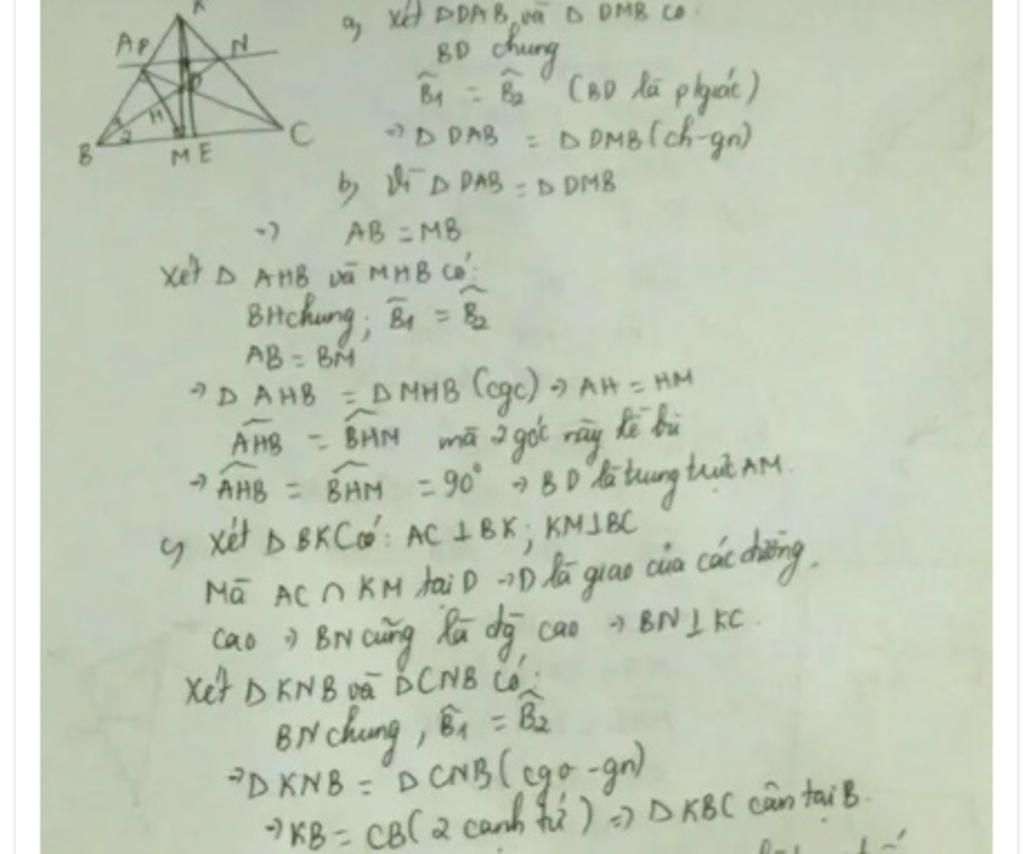 K
A P N
D
H
1
2
B M E C
a, Xét Δ DAB và Δ DMB có
BD chung
B̂1 = B̂2 (BD là p/giác)
→ Δ DAB = Δ DMB (ch-gn)
b, Vì Δ DAB = Δ DMB
→ AB = MB
Xét Δ AHB và MHB có:
BH chung; B̂1 = B̂2
AB = BM
→ Δ AHB = Δ MHB (cgc) → AH = HM
AHB̂ = BHM̂ mà 2 góc này kề bù
→ AHB̂ = BHM̂ = 90° → BD là trung trực AM.
c, Xét Δ BKC có: AC ⊥ BK; KM ⊥ BC
Mà AC ∩ KM tại D → D là giao của các đường
cao → BN cũng là đg cao → BN ⊥ KC.
Xét Δ KNB và Δ CNB có:
BN chung, B̂1 = B̂2
→ Δ KNB = Δ CNB (cgv-gn)
→ KB = CB (2 cạnh tứ) => Δ KBC cân tại B.